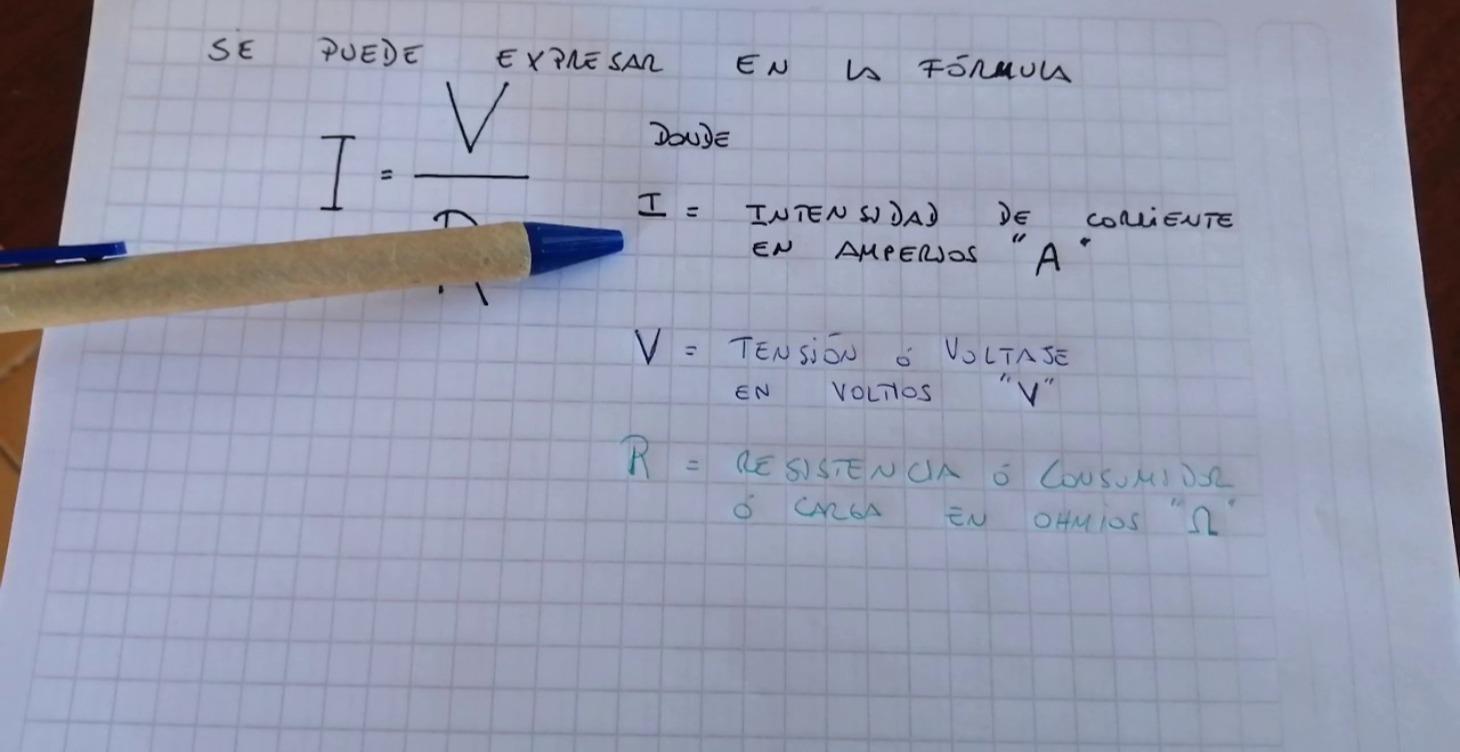 SE PUEDE EXPRESAR EN LA FÓRMULA
I = V / R
DONDE
I = INTENSIDAD DE CORRIENTE
EN AMPERIOS "A"
V = TENSIÓN Ó VOLTAJE
EN VOLTIOS "V"
R = RESISTENCIA Ó CONSUMIDOR
Ó CARGA EN OHMIOS "Ω"